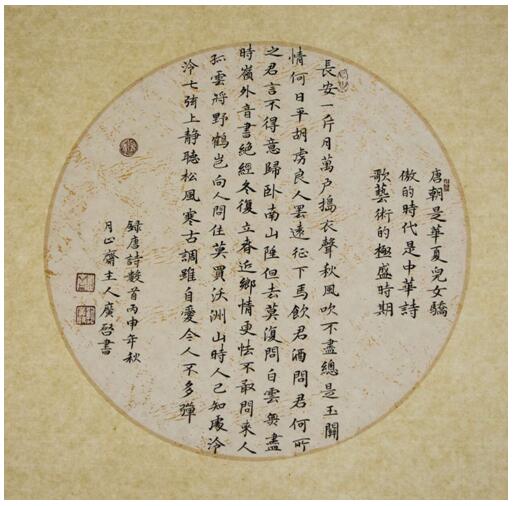 唐朝是華夏兒女驕
傲的時代是中華詩
歌藝術的極盛時期
長安一片月萬户搗衣聲秋風吹不盡總是玉關
情何日平胡虜良人罷遠征下馬飲君酒問君何所
之君言不得意歸卧南山陲但去莫復問白雲無盡
時嶺外音書絶經冬復立春近鄉情更怯不敢問來人
孤雲將野鶴豈向人間住莫買沃洲山時人已知處泠
泠七弦上静聽松風寒古調雖自愛今人不多彈
録唐詩數首丙申年秋
月心齋主人廣啓書